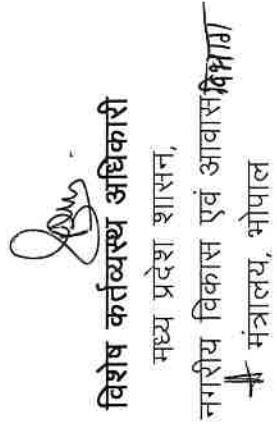 विशेष कर्तव्यस्थ अधिकारी
मध्य प्रदेश शासन,
नगरीय विकास एवं आवास विभाग
मंत्रालय, भोपाल